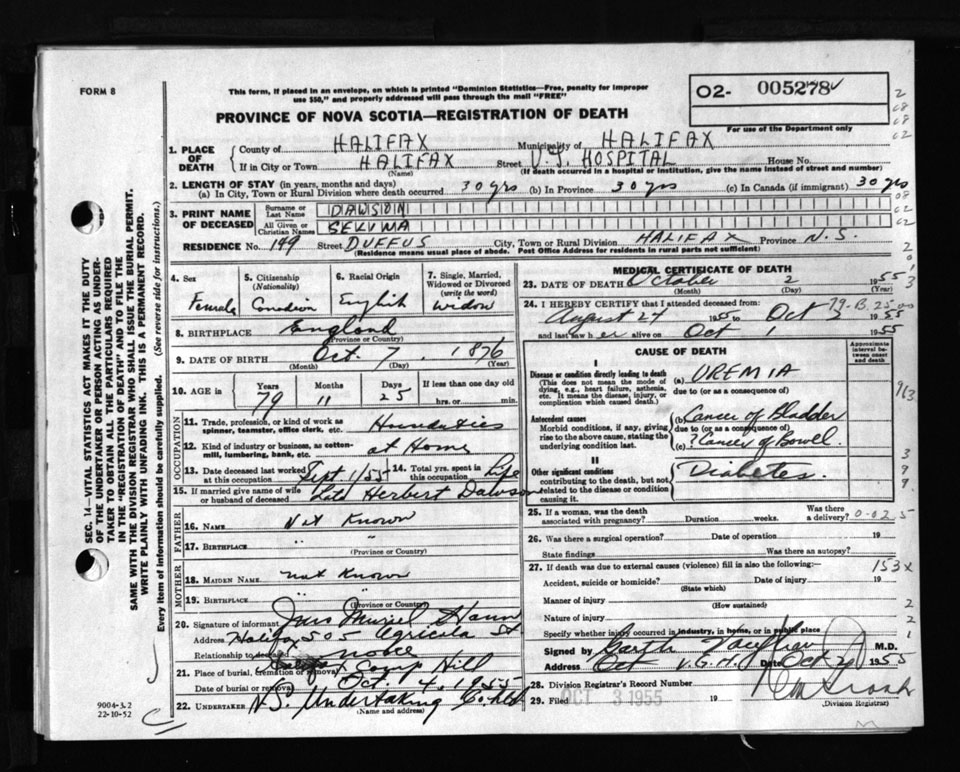 FORM 8
This form, if placed in an envelope, on which is printed "Dominion Statistics—Free, penalty for improper
use $50," and properly addressed will pass through the mail "FREE"
O2- 005278
For use of the Department only
PROVINCE OF NOVA SCOTIA—REGISTRATION OF DEATH
1. PLACE OF DEATH
County of HALIFAX Municipality of HALIFAX
If in City or Town HALIFAX Street V.G. HOSPITAL House No.
(Name) (If death occurred in a hospital or institution, give the name instead of street and number)
2. LENGTH OF STAY (in years, months and days)
(a) In City, Town or Rural Division where death occurred 30 yrs (b) In Province 30 yrs (c) In Canada (if immigrant) 30 yrs
3. PRINT NAME OF DECEASED
Surname or Last Name DAWSON
All Given or Christian Names
RESIDENCE No. 149 Street DUFFUS City, Town or Rural Division HALIFAX Province N.S.
(Residence means usual place of abode. Post Office Address for residents in rural parts not sufficient)
4. Sex Female
5. Citizenship (Nationality) Canadian
6. Racial Origin English
7. Single, Married, Widowed or Divorced (write the word) Widow
8. BIRTHPLACE England
(Province or Country)
9. DATE OF BIRTH Oct. 7, 1876
(Month) (Day) (Year)
10. AGE in Years 79 Months 11 Days 25 If less than one day old
hrs. or min.
OCCUPATION
11. Trade, profession, or kind of work as spinner, teamster, office clerk, etc.
12. Kind of industry or business, as cotton-mill, lumbering, bank, etc. at Home
13. Date deceased last worked at this occupation Sept. 1/55 14. Total yrs. spent in this occupation Life
15. If married give name of wife or husband of deceased Late Herbert Dawson
FATHER
16. NAME Not Known
17. BIRTHPLACE " "
(Province or Country)
MOTHER
18. MAIDEN NAME not Known
19. BIRTHPLACE " "
(Province or Country)
20. Signature of informant Muriel
Address Halifax 505 Agricola St
Relationship to deceased
21. Place of burial, cremation or removal Camp Hill
Date of burial or removal Oct. 4, 1955
22. UNDERTAKER N.S. Undertaking Co. Ltd
(Name and address)
MEDICAL CERTIFICATE OF DEATH
23. DATE OF DEATH October 2 1955
(Month) (Day) (Year)
24. I HEREBY CERTIFY that I attended deceased from
August 27 1955 to Oct
and last saw her alive on Oct 1 1955
CAUSE OF DEATH
Approximate interval between onset and death
I
Disease or condition directly leading to death (a) UREMIA
(This does not mean the mode of dying, e.g., heart failure, asthenia, etc. It means the disease, injury, or complication which caused death.)
due to (or as a consequence of)
Antecedent causes (b) Cancer of Bladder
Morbid conditions, if any, giving rise to the above cause, stating the underlying condition last.
due to (or as a consequence of)
(c) ? Cancer of Bowel.
II
Other significant conditions contributing to the death, but not related to the disease or condition causing it.
Diabetes.
25. If a woman, was the death associated with pregnancy? Duration weeks. Was there a delivery?
26. Was there a surgical operation? Date of operation 19
State findings Was there an autopsy?
27. If death was due to external causes (violence) fill in also the following:— 153x
Accident, suicide or homicide? Date of injury 19
(State which)
Manner of injury
(How sustained)
Nature of injury
Specify whether injury occurred in industry, in home, or in public place
Signed by M.D.
Address V.G.H. Date Oct 2 1955
28. Division Registrar's Record Number
29. Filed OCT 3 1955 19
(Division Registrar)
SEC. 14—VITAL STATISTICS ACT MAKES IT THE DUTY
OF THE UNDERTAKER OR PERSON ACTING AS UNDER-
TAKER TO OBTAIN ALL THE PARTICULARS REQUIRED
IN THE "REGISTRATION OF DEATH" AND TO FILE THE
SAME WITH THE DIVISION REGISTRAR WHO SHALL ISSUE THE BURIAL PERMIT.
WRITE PLAINLY WITH UNFADING INK. THIS IS A PERMANENT RECORD.
Every item of information should be carefully supplied. (See reverse side for instructions.)
9004-3.2
22-10-52